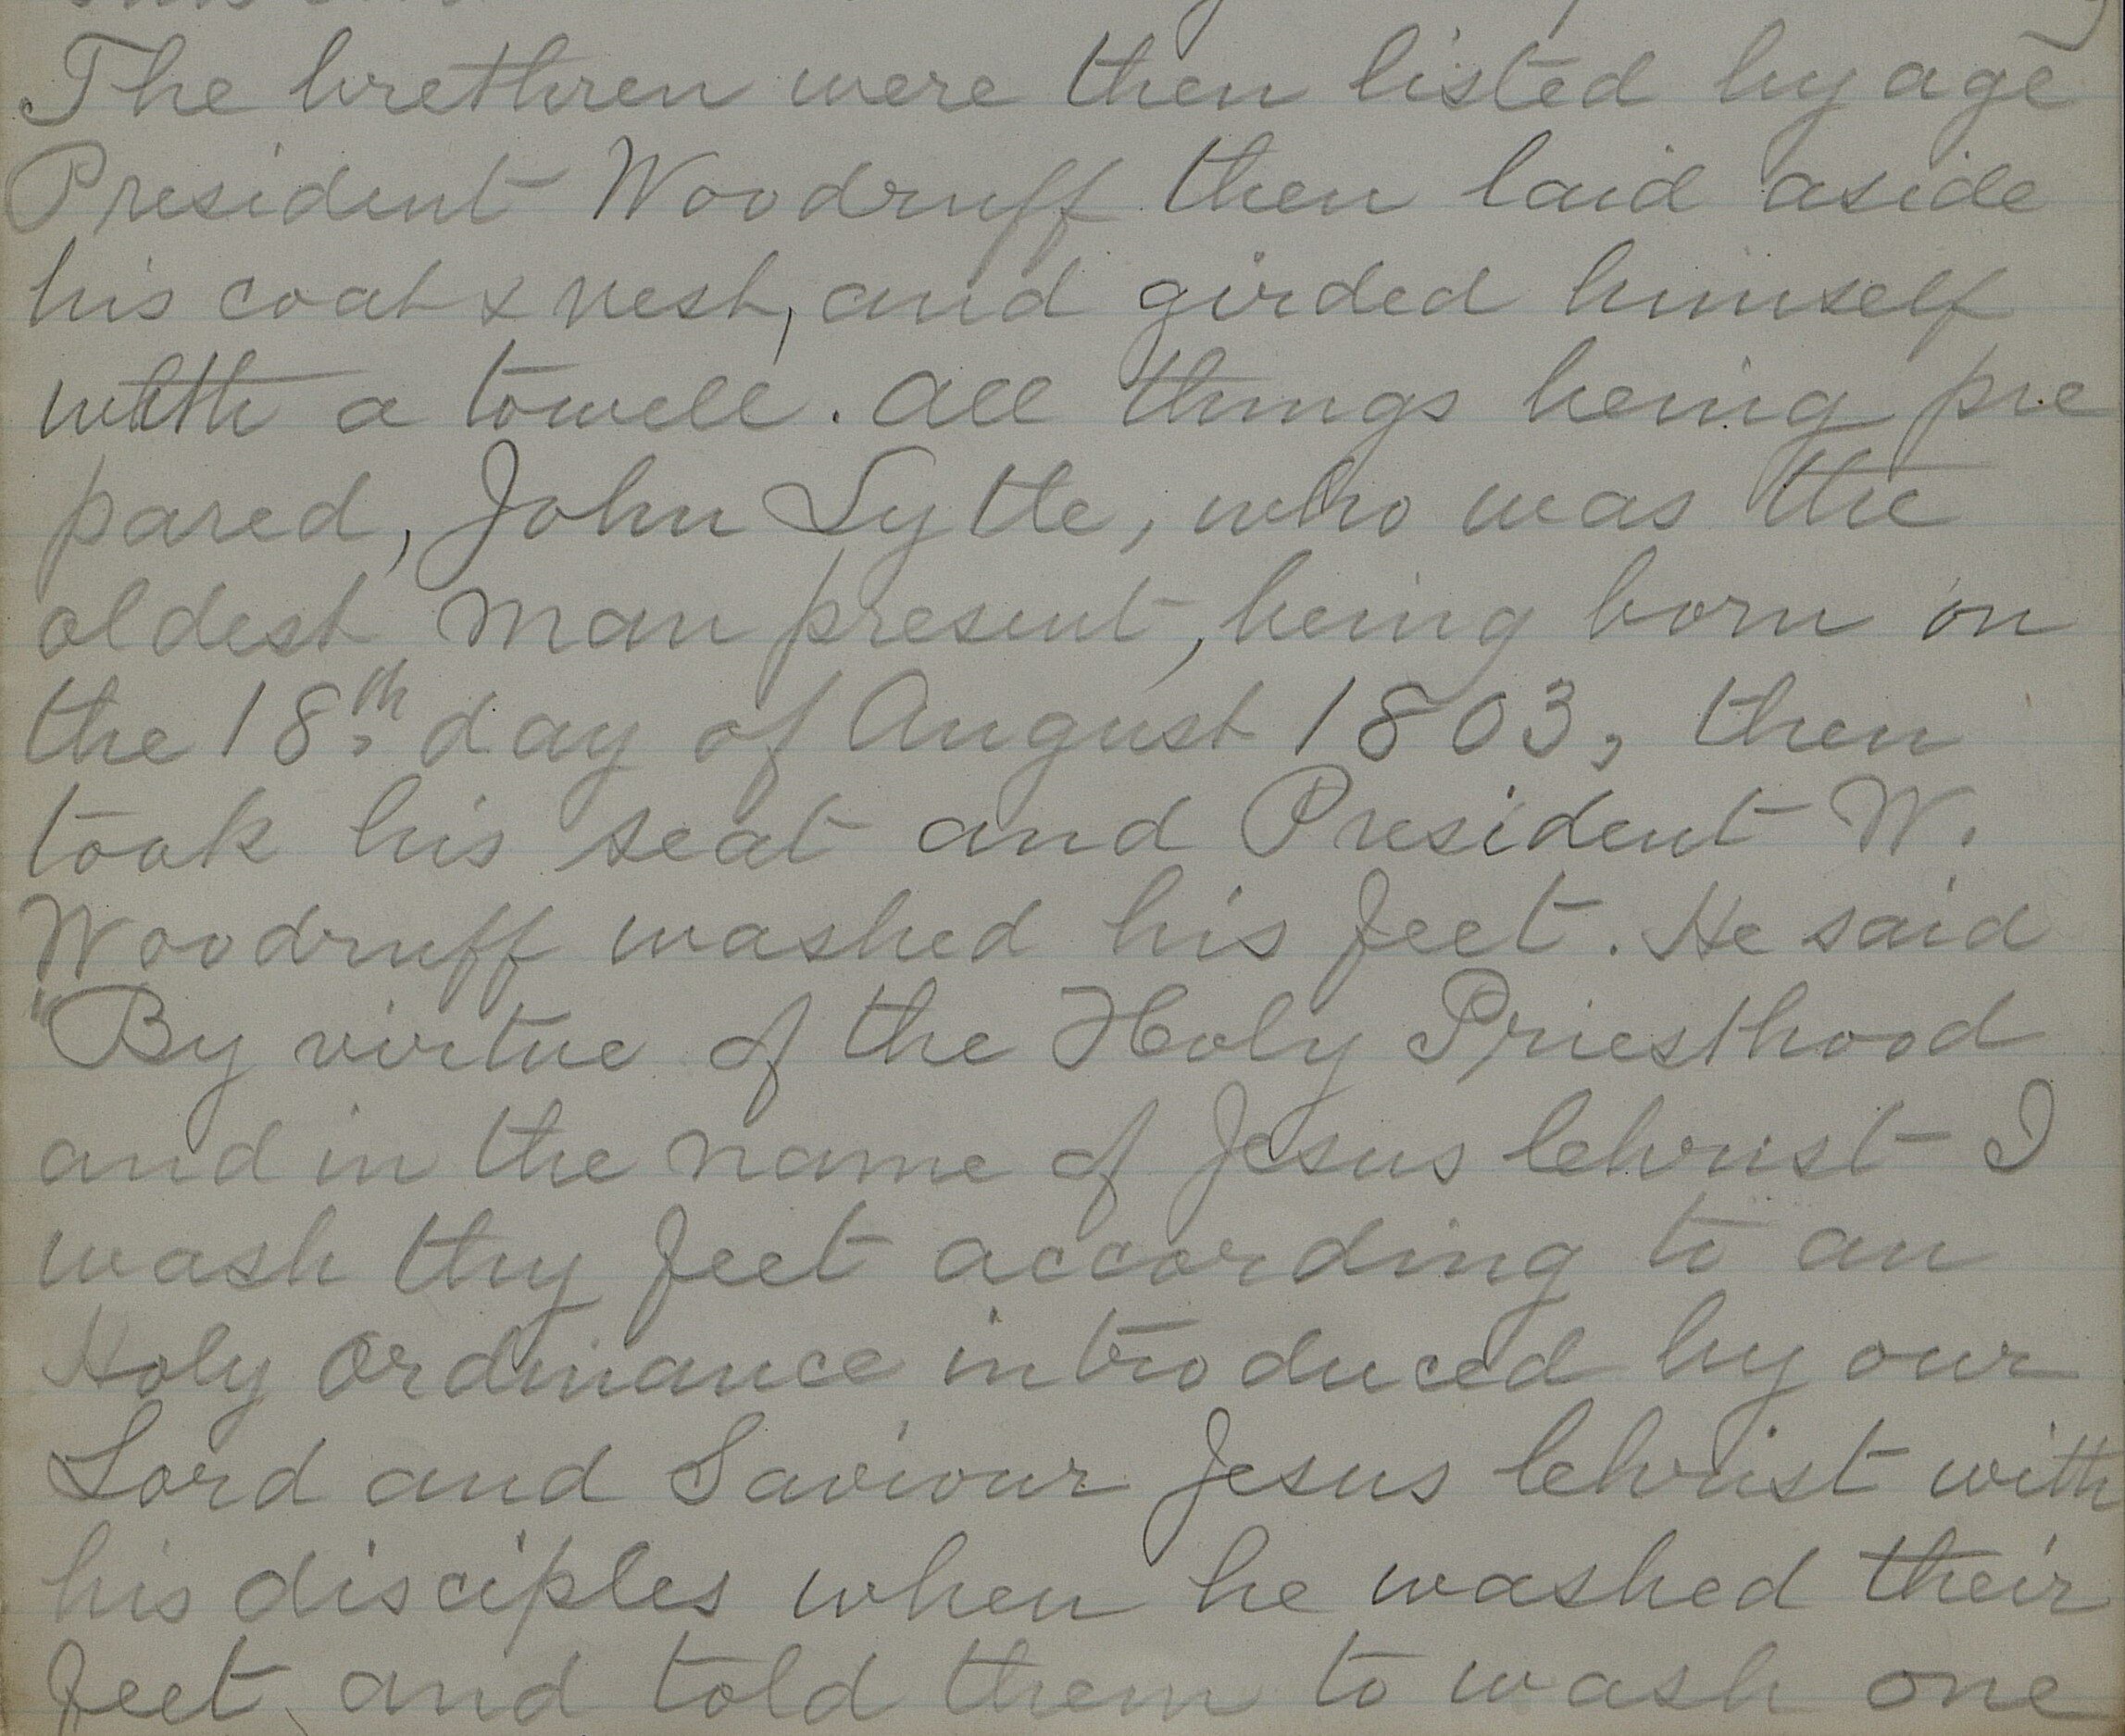 The brethren were then listed by age
President Woodruff then laid aside
his coat & vest, and girded himself
with a towell. All things being pre
pared, John Lytle, who was the
oldest man present, being born on
the 18th. day of August 1803, then
took his seat and President W.
Woodruff washed his feet. He said
"By virtue of the Holy Priesthood
and in the name of Jesus Christ I
wash thy feet according to an
Holy Ordinance introduced by our
Lord and Saviour Jesus Christ with
his disciples when he washed their
feet, and told them to wash one